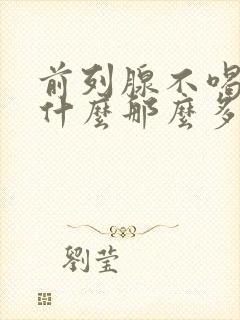 前列腺不喝
什麼那麼多
劉莹